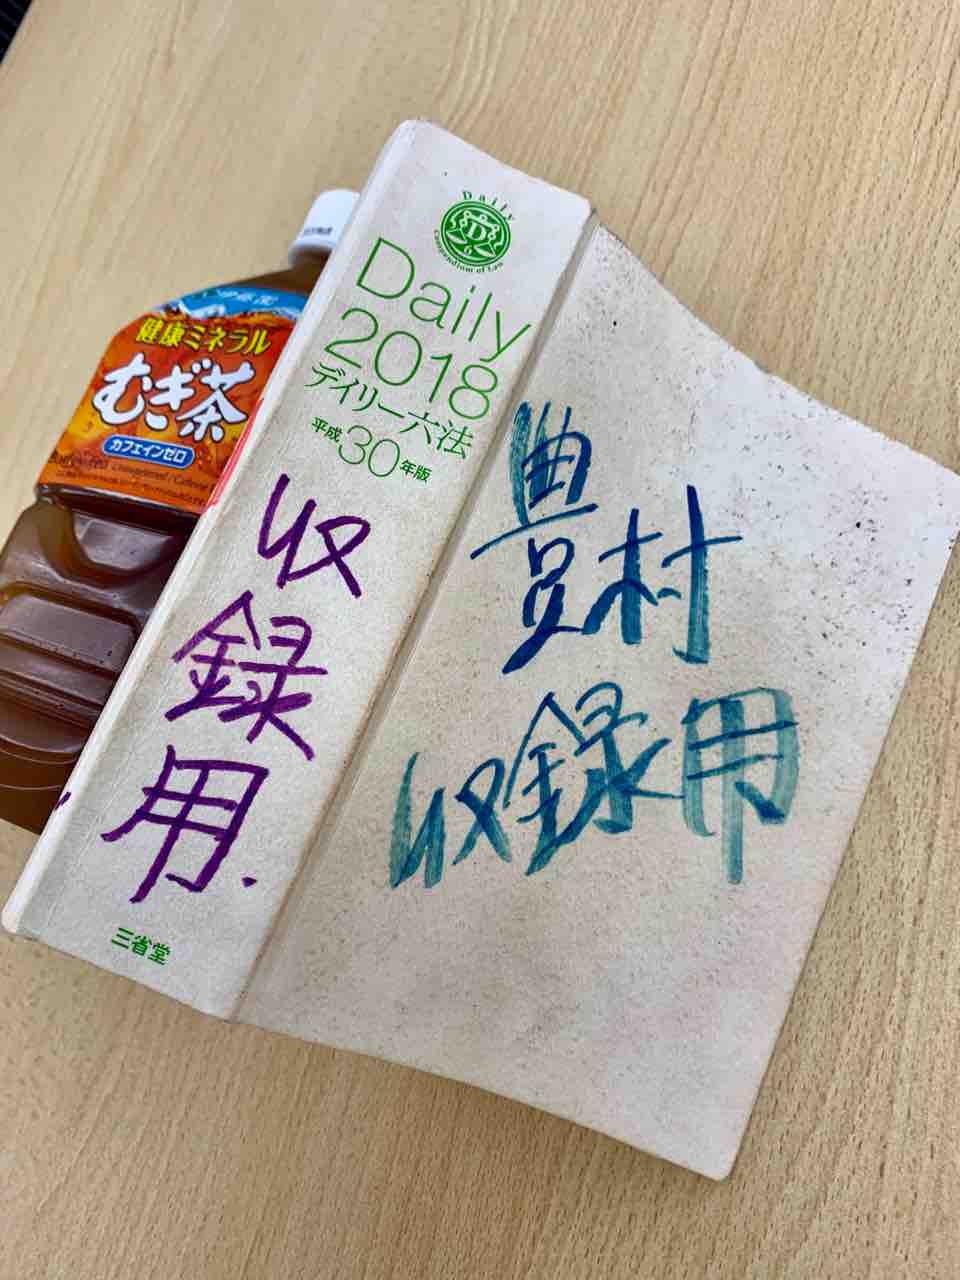 Daily
Compendium of Law
D
6
Daily
2018
デイリー六法
平成30年版
収録用
三省堂
豊村
収録用
伊藤園
健康ミネラル
むぎ茶
カフェインゼロ